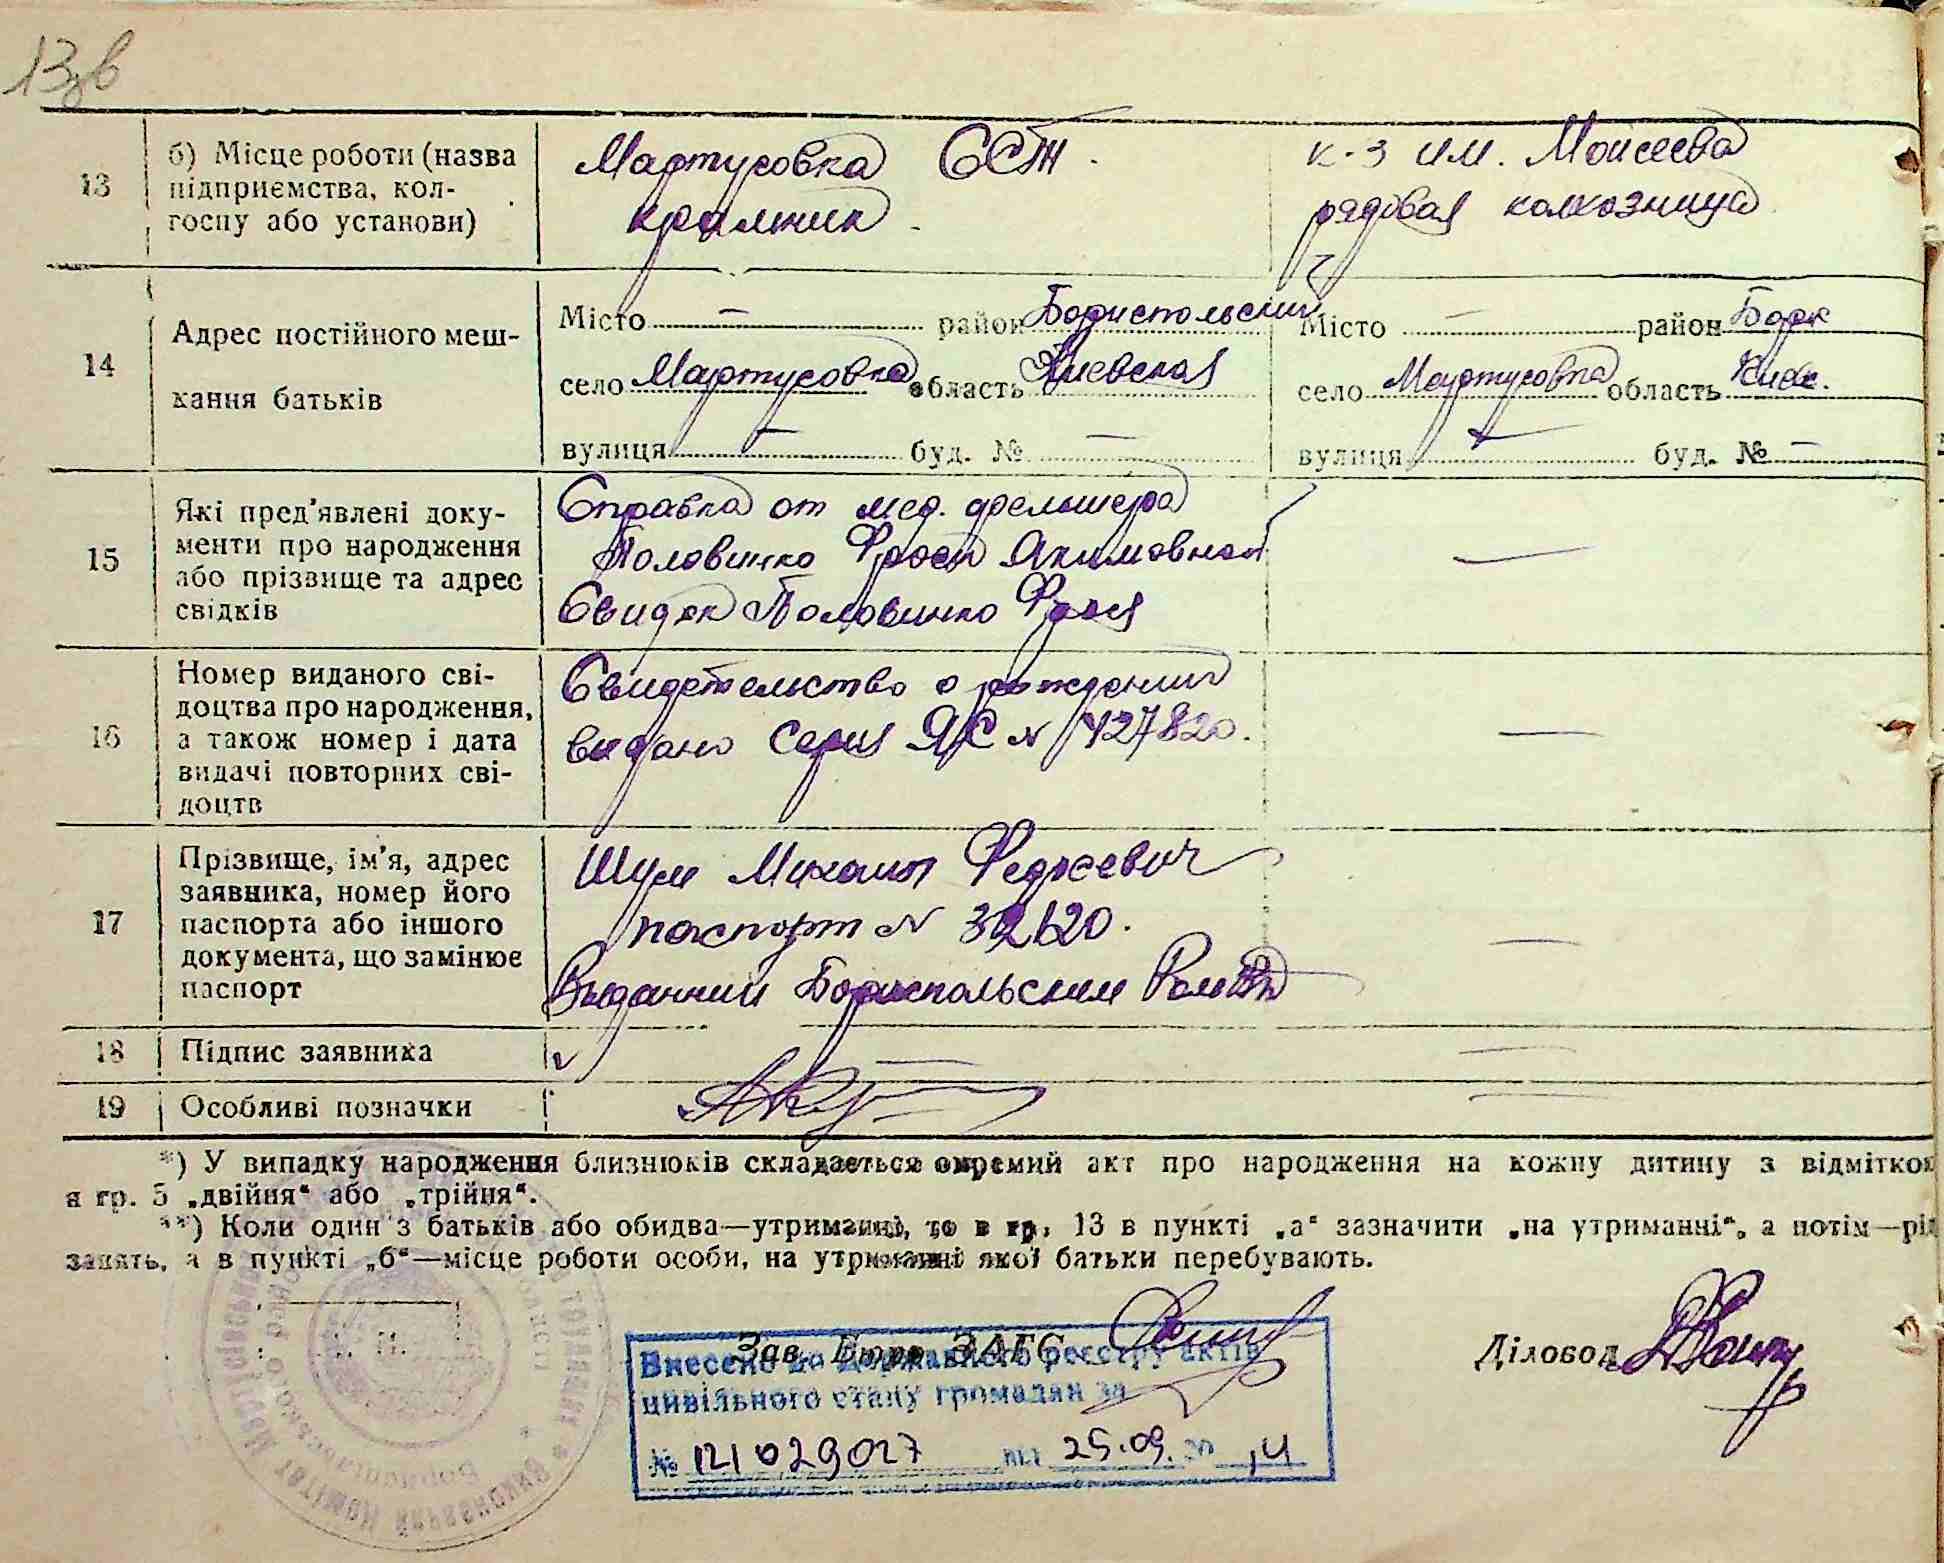 13зв
13 б) Місце роботи (назва підприємства, колгоспу або установи)
Мартусовка ССТ
крамник
к-з им. Моисеева
рядовая колхозница
14 Адрес постійного мешкання батьків
Місто — район Бориспольский
село Мартусовка область Киевская
вулиця — буд. № —
Місто — район Борк
село Мартусовка область Киев.
вулиця — буд. № —
15 Які пред’явлені документи про народження або прізвище та адрес свідків
Справка от мед. фельшера
Половинко Фроси Якимовной
Свидек Половинко Фрося
—
16 Номер виданого свідоцтва про народження, а також номер і дата видачі повторних свідоцтв
Свидетельство о рождении
видано серия ЯС № 427820.
—
17 Прізвище, ім’я, адрес заявника, номер його паспорта або іншого документа, що замінює паспорт
Шум Михаил
паспорт №
Виданний Бориспольским
—
18 Підпис заявника
19 Особливі позначки
*) У випадку народження близнюків складається окремий акт про народження на кожну дитину з відміткою
в гр. 5 „двійня“ або „трійня“.
**) Коли один з батьків або обидва—утриманці, то в гр. 13 в пункті „а“ зазначити „на утриманні“, а потім—рід
занять, а в пункті „б“—місце роботи особи, на утриманні якої батьки перебувають.
Зав. Бюро ЗАГС
Діловод
Внесено до Державного реєстру актів
цивільного стану громадян за
№ 121029027 від 25.09. 20 14